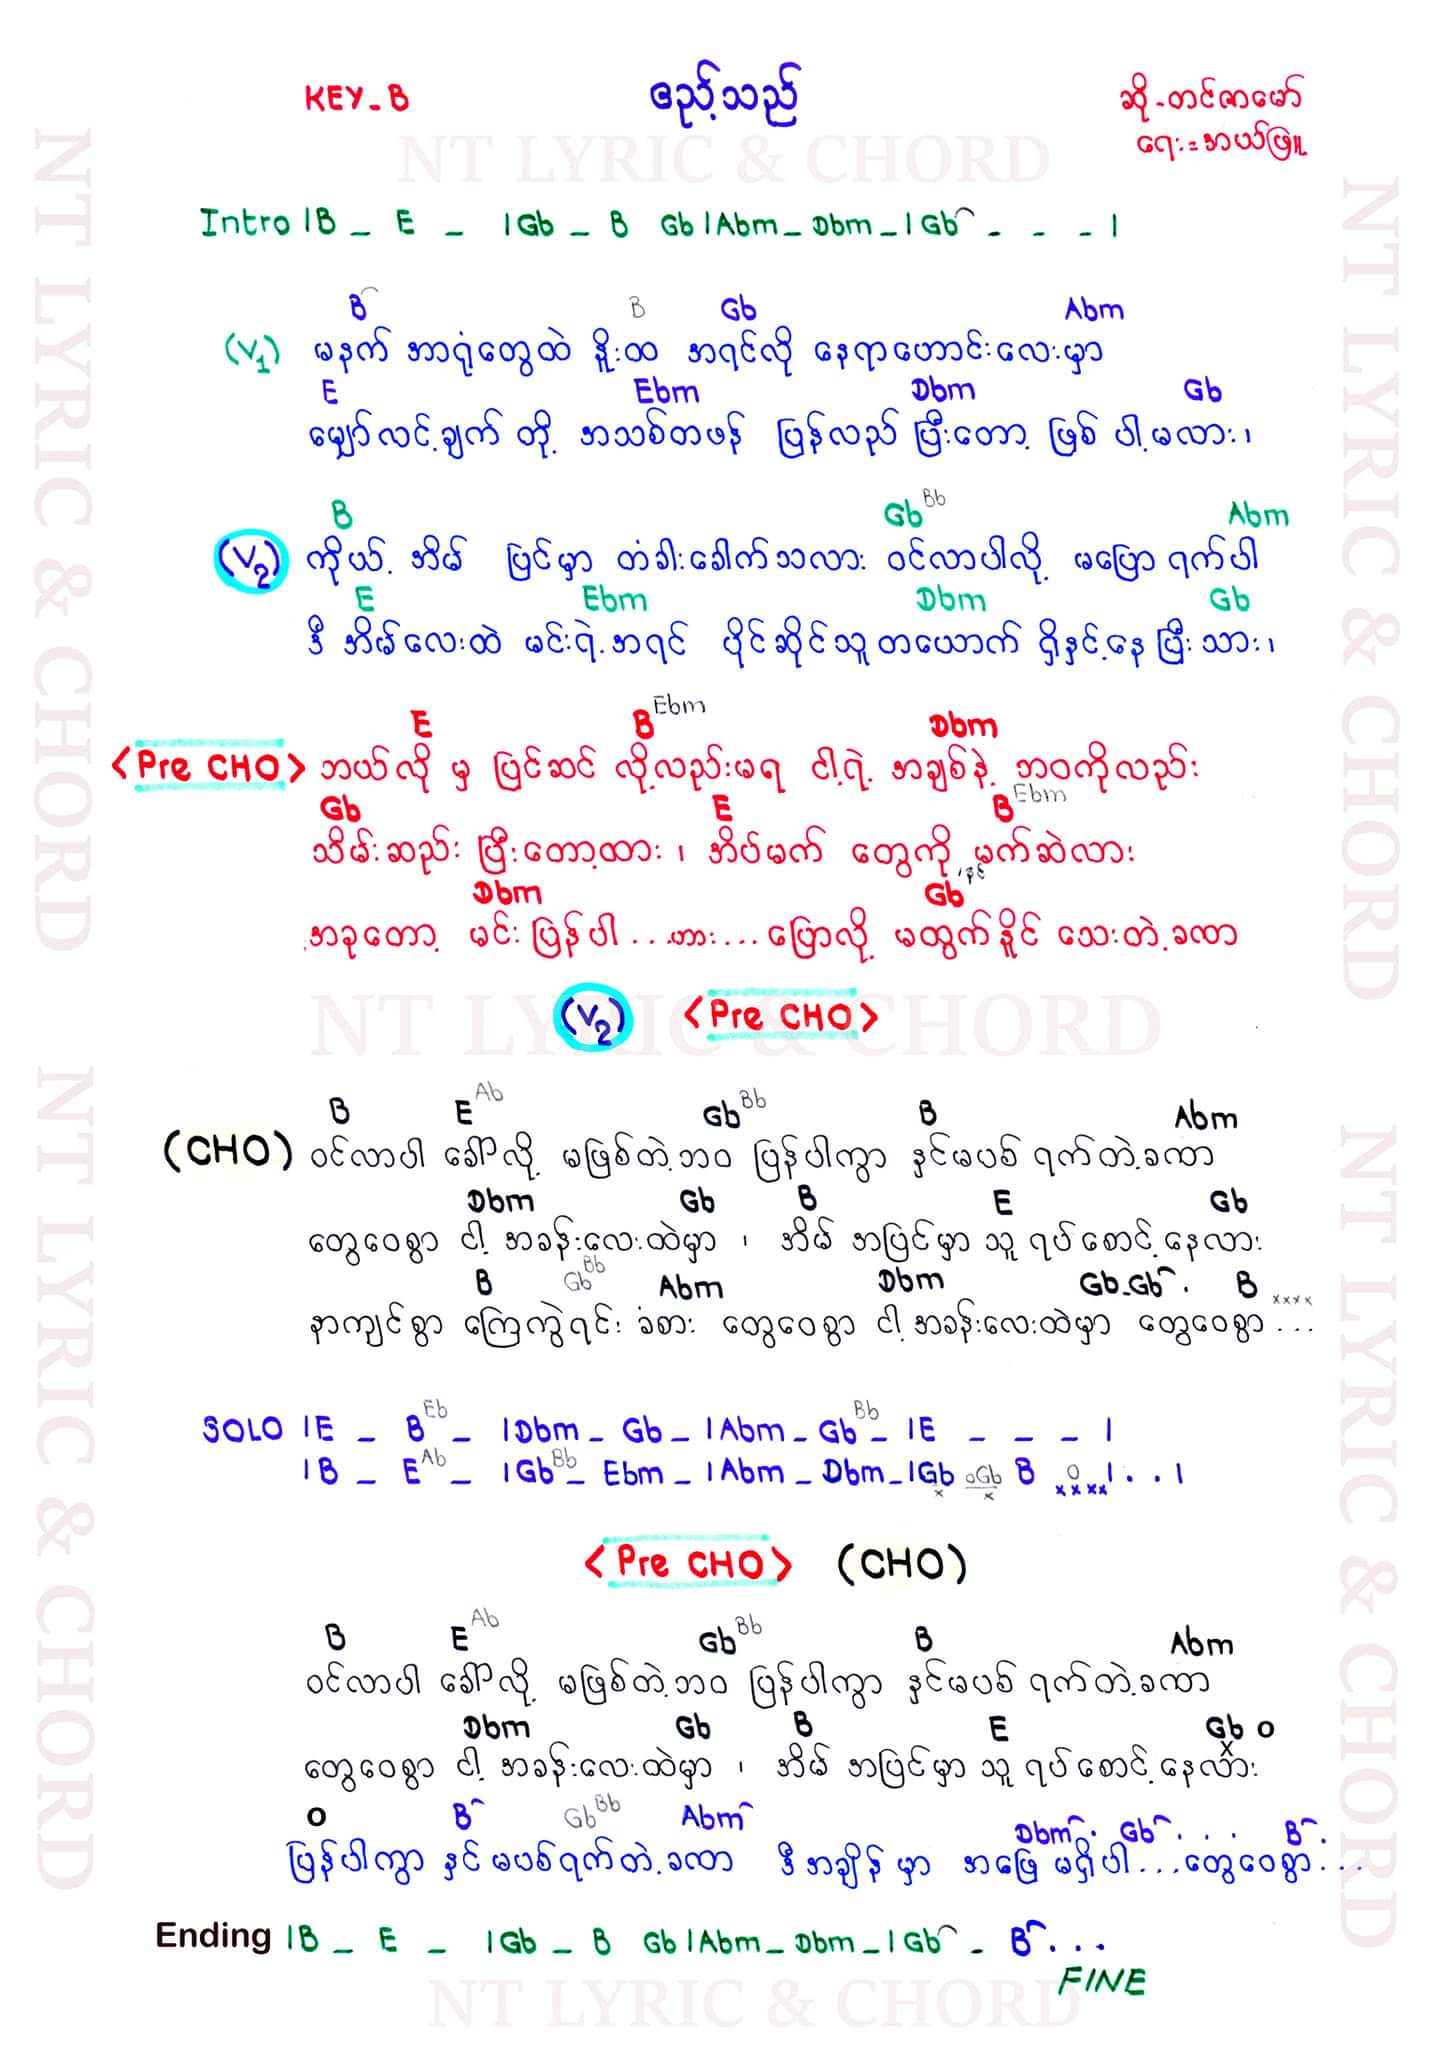 KEY_B
ဧည့်သည်
ဆို - တင်ဇာမော်
ရေး = အယ်ဖြူ
NT LYRIC & CHORD
Intro |B _ E _ |Gb _ B Gb |Abm _ Dbm _ |Gb - - - |
B B Gb Abm
(V1) မနက် အာရုံတွေထဲ နိူးထ အရင်လို နေရာဟောင်းလေးမှာ
E Ebm Dbm Gb
မျှော်လင့်ချက် တို့ အသစ်တဖန် ပြန်လည် ပြီးတော့ ဖြစ် ပါ့မလား၊
B Gb Bb Abm
(V2) ကိုယ့် အိမ် ပြင်မှာ တံခါးခေါက်သလား ဝင်လာပါလို့ မပြောရက်ပါ
E Ebm Dbm Gb
ဒီ အိမ်လေးထဲ မင်းရဲ့အရင် ပိုင်ဆိုင်သူတယောက် ရှိနှင့်နေပြီးသား၊
E B Ebm Dbm
<Pre CHO> ဘယ်လို မှ ပြင်ဆင် လို့လည်းမရ ငါ့ရဲ့ အချစ်နဲ့ ဘဝကိုလည်း
Gb E B Ebm
သိမ်းဆည်း ပြီးတော့ထား ၊ အိပ်မက် တွေကို မက်ဆဲလား
Dbm Gb
အခုတော့ မင်း ပြန်ပါ ...ဟား... ပြောလို့ မထွက်နိူင် သေးတဲ့ခဏ
(V2) <Pre CHO>
NT LYRIC & CHORD
B E Ab Gb Bb B Abm
(CHO) ဝင်လာပါ ခေါ်လို့ မဖြစ်တဲ့ဘဝ ပြန်ပါကွာ နှင်မပစ် ရက်တဲ့ခဏ
Dbm Gb B E Gb
တွေဝေစွာ ငါ့ အခန်းလေးထဲမှာ ၊ အိမ် အပြင်မှာ သူ ရပ်စောင့်နေလား
B Gb Bb Abm Dbm Gb-Gb . B xxxx
နာကျင်စွာ ကြေကွဲရင်း ခံစား တွေဝေစွာ ငါ့အခန်းလေးထဲမှာ တွေဝေစွာ ...
SOLO |E _ B Eb _ |Dbm _ Gb _ |Abm _ Gb Bb _ |E _ _ _ |
|B _ E Ab _ |Gb Bb _ Ebm _ |Abm _ Dbm _ |Gb oGb B o | . . |
x x xxxx
<Pre CHO> (CHO)
B E Ab Gb Bb B Abm
ဝင်လာပါ ခေါ်လို့ မဖြစ်တဲ့ဘဝ ပြန်ပါကွာ နှင်မပစ် ရက်တဲ့ခဏ
Dbm Gb B E Gb o
x
တွေဝေစွာ ငါ့ အခန်းလေးထဲမှာ ၊ အိမ် အပြင်မှာ သူ ရပ်စောင့်နေလား
o B Gb Bb Abm Dbm . Gb . . . B .
ပြန်ပါကွာ နှင်မပစ်ရက်တဲ့ခဏ ဒီအချိန်မှာ အဖြေ မရှိပါ ...တွေဝေစွာ ...
Ending |B _ E _ |Gb _ B Gb |Abm _ Dbm _ |Gb - B . . .
FINE
NT LYRIC & CHORD
NT LYRIC & CHORD
NT LYRIC & CHORD
NT LYRIC & CHORD
NT LYRIC & CHORD